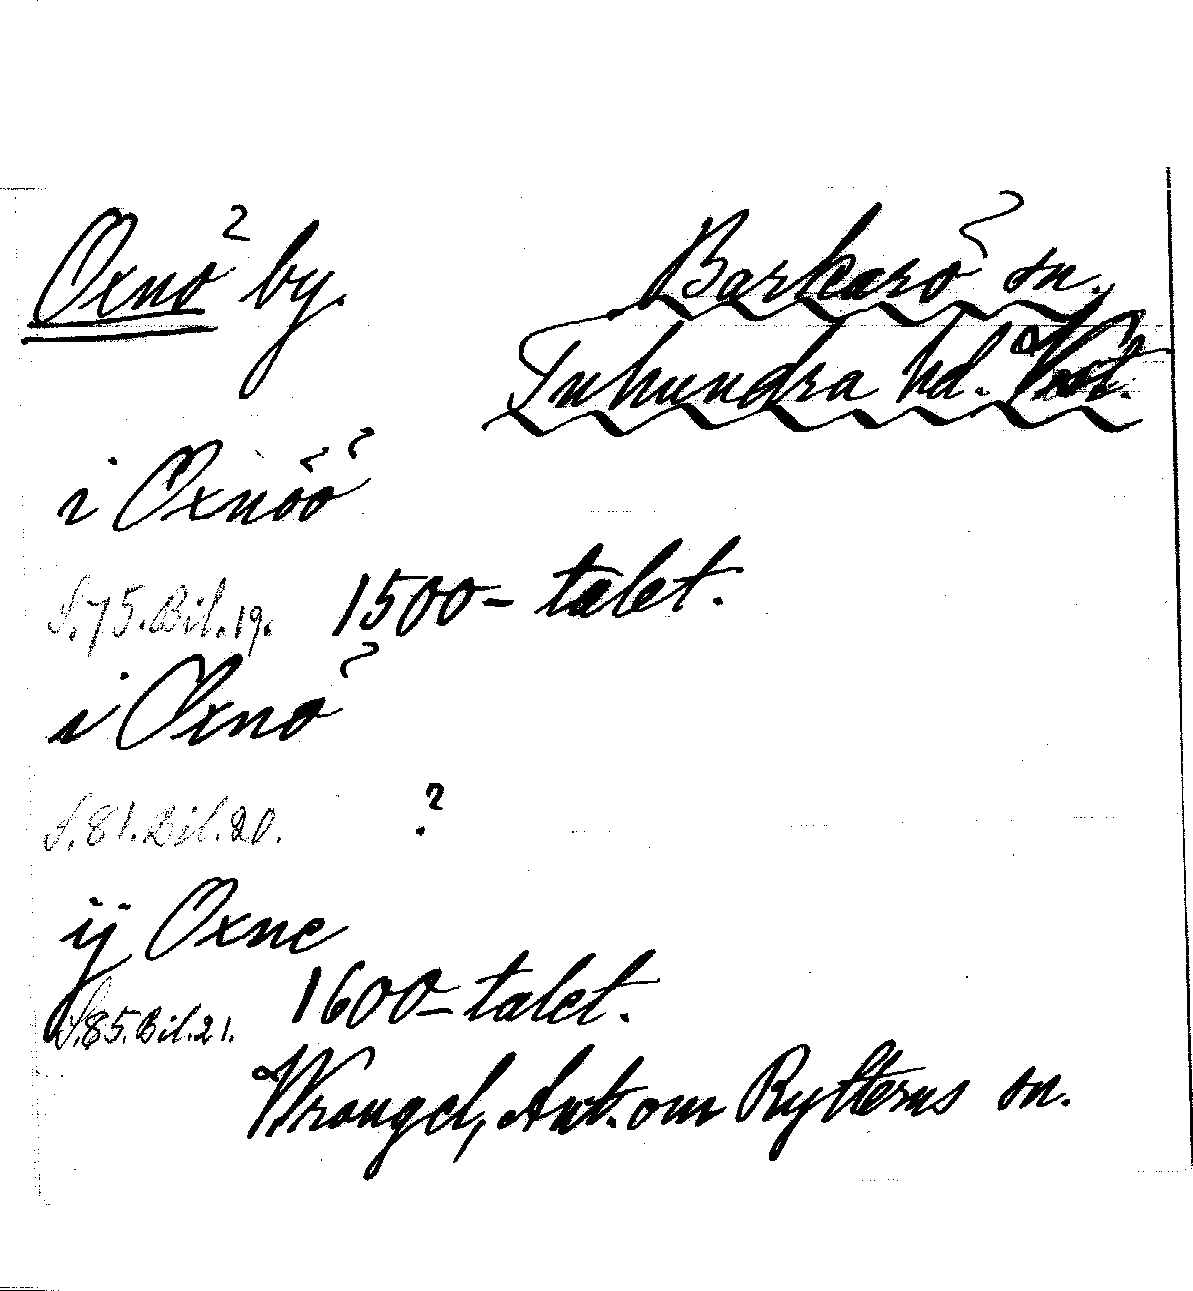 Oxnö by.
Barkarö sn.,
Tuhundra hd. Vstm.
i Oxnöö
S.75.Bil.19. 1500-talet.
i Oxnö
S.81.Bil.20. ?
ij Oxne
S.85.Bil.21. 1600-talet.
Wrangel, Ant. om Rytterns sn.